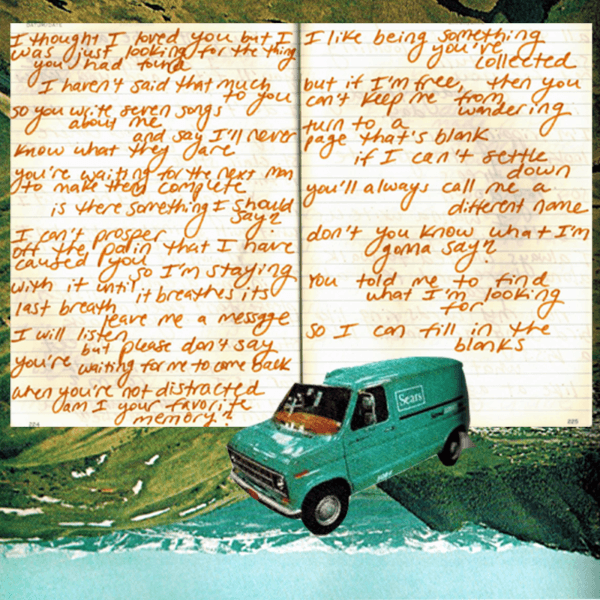 I thought I loved you but I
was just looking for the thing
you had found
I haven't said that much
to you
so you write seven songs
about me
and say I'll never
know what they are
you're waiting for the next man
to make them complete
is there something I should
say?
I can't prosper
off the pain that I have
caused you
so I'm staying
with it until it breathes its
last breath
leave me a message
I will listen
but please don't say
you're waiting for me to come back
when you're not distracted
am I your favorite
memory?
224
I like being something
you've
collected
but if I'm free, then you
can't keep me from
wandering
turn to a
page that's blank
if I can't settle
down
you'll always call me a
different name
don't you know what I'm
gonna say?
You told me to find
what I'm looking
for
so I can fill in the
blanks
225
Sears